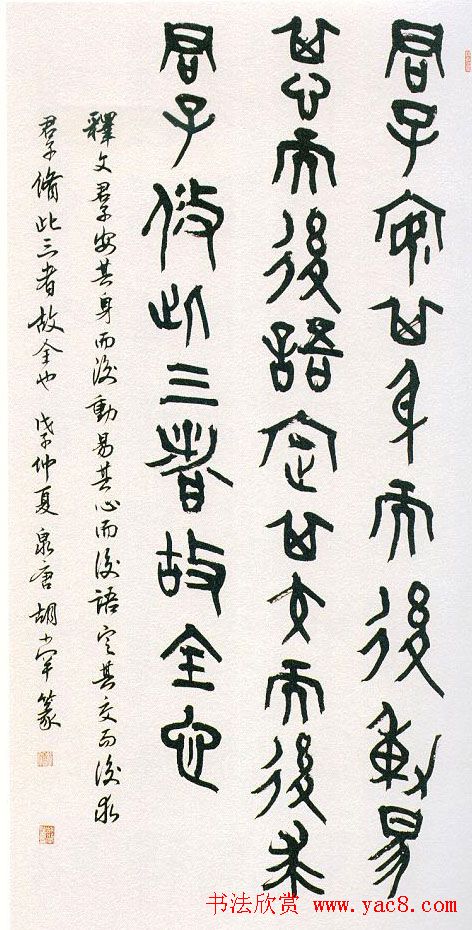 君子安其身而後動易
其心而後語定其交而後求
君子脩此三者故全也
釋文君子安其身而後動易其心而後語定其交而後求
君子脩此三者故全也 戊子仲夏泉唐胡小罕篆
书法欣赏 www.yac8.com